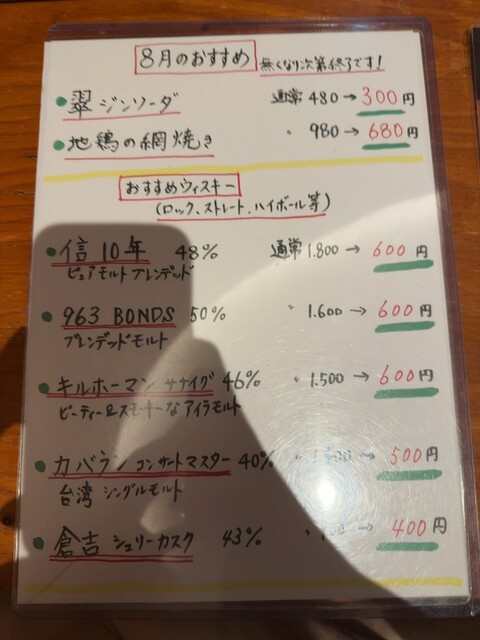 8月のおすすめ 無くなり次第終了です!
• 翠ジンソーダ 通常 480→300円
• 地鶏の網焼き 〃 980→680円
おすすめウィスキー
(ロック、ストレート、ハイボール等)
• 信10年 48% 通常 1.800→600円
ピュアモルトブレンデッド
• 963 BONDS 50% 〃 1.600→600円
ブレンデッドモルト
• キルホーマン サナイグ 46% 〃 1.500→600円
ピーティー&スモーキーなアイラモルト
• カバラン コンサートマスター 40% 〃 →500円
台湾シングルモルト
• 倉吉 シェリーカスク 43% 〃 →400円